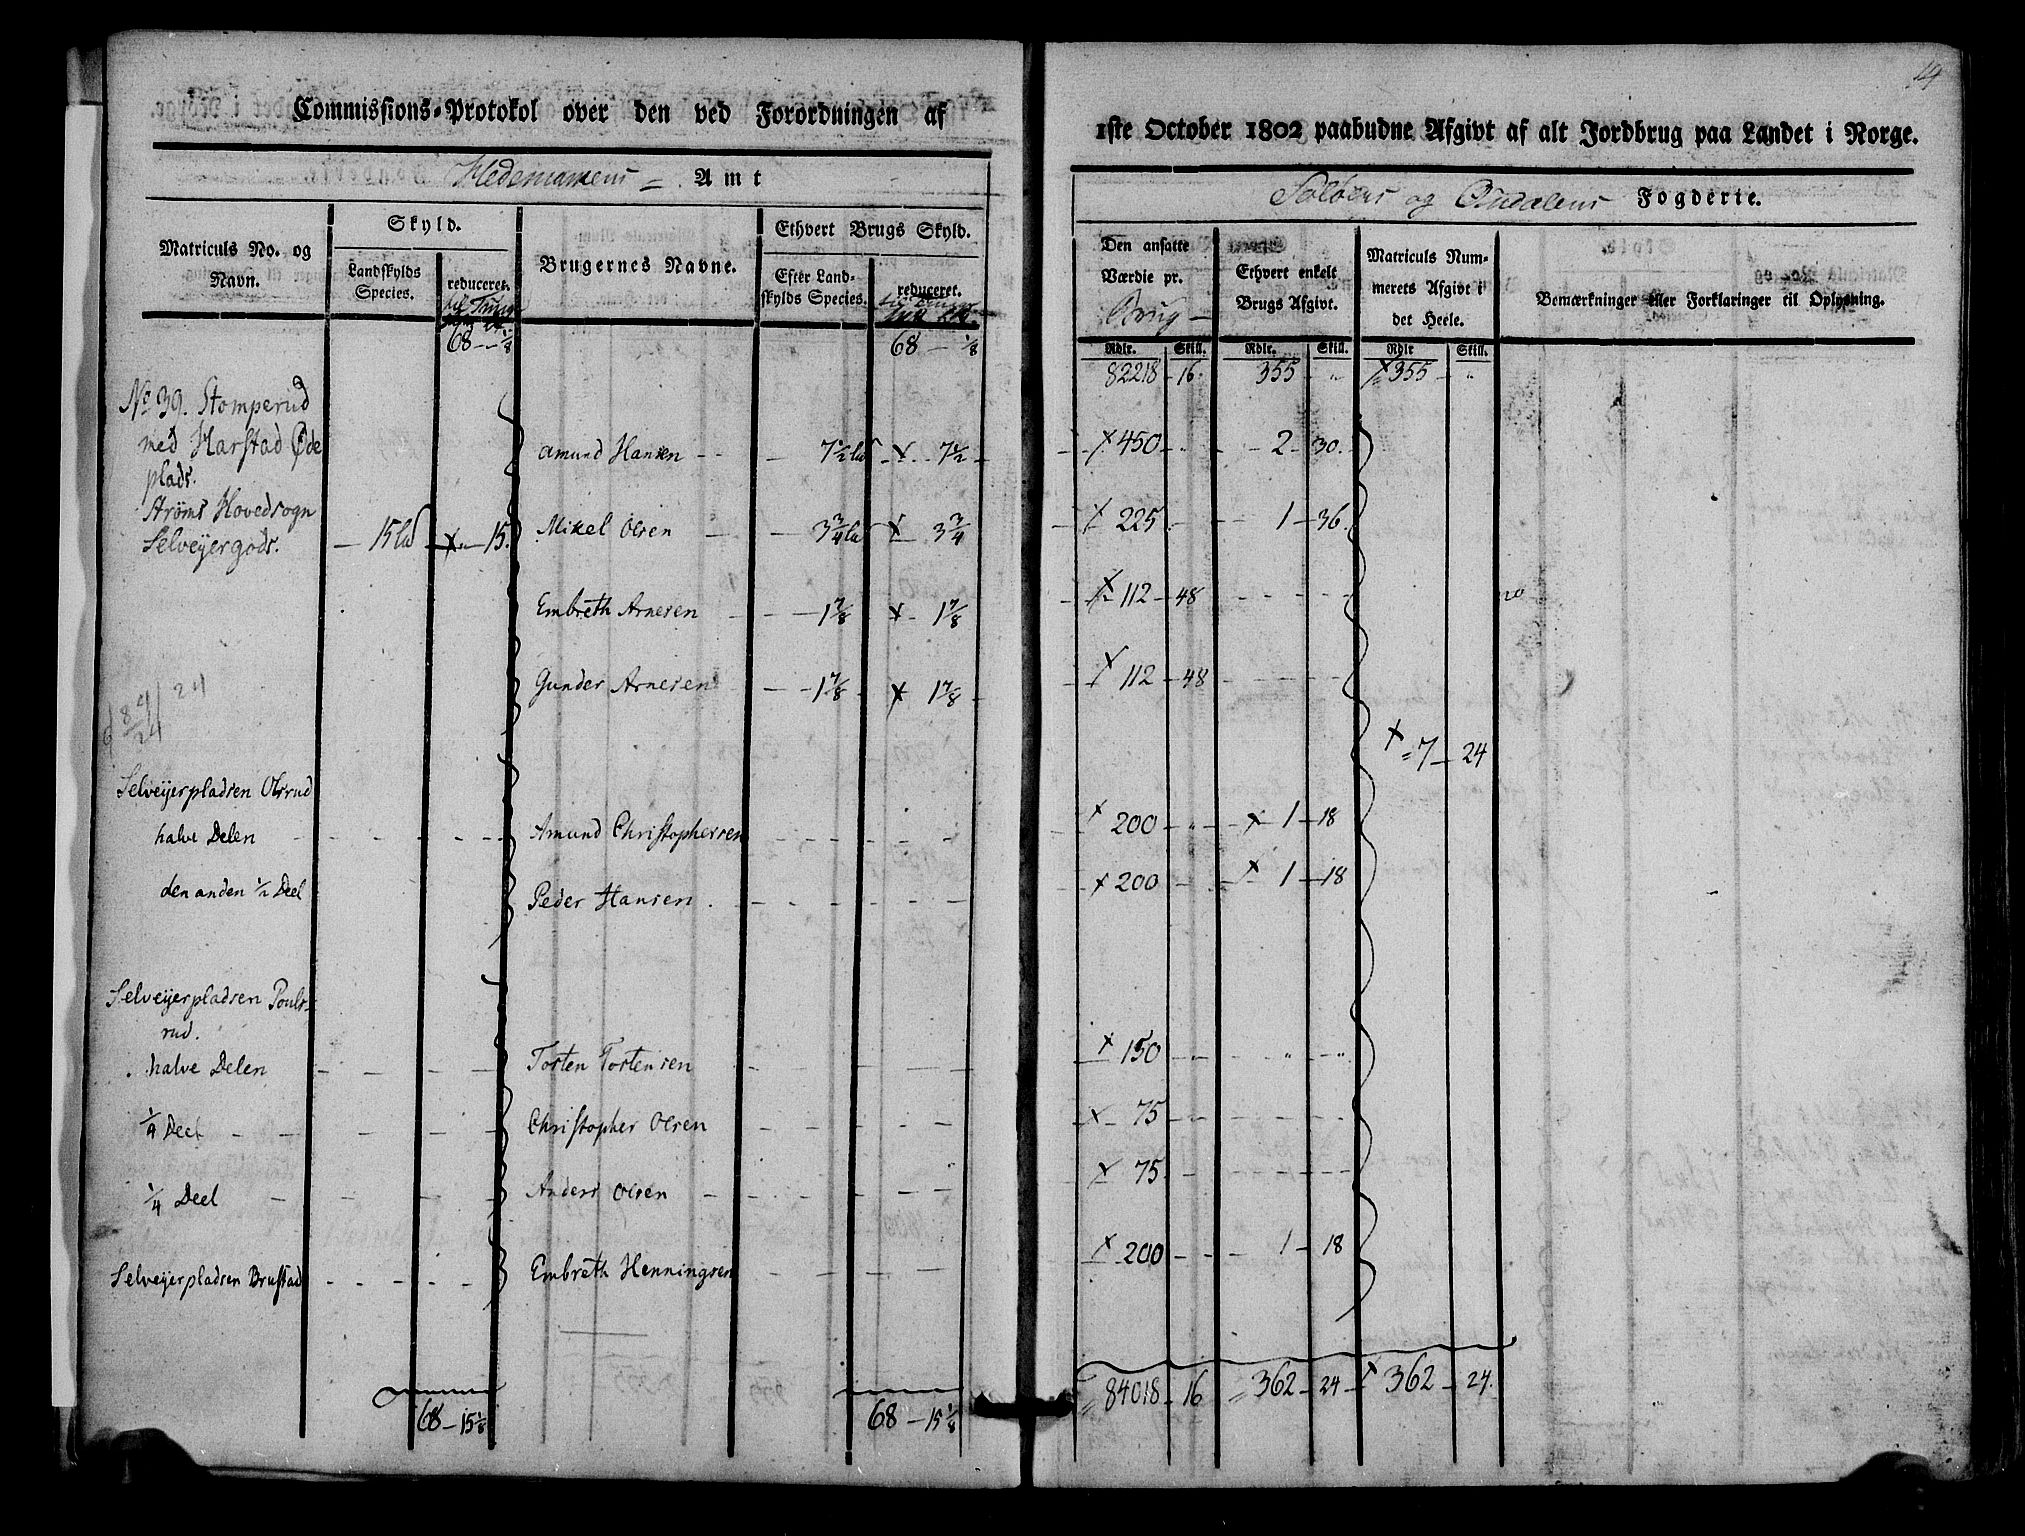 14
Commissions-Protokol over den ved Forordningen af
1ste October 1802 paabudne Afgivt af alt Jordbrug paa Landet i Norge.
Hedemarkens Amt
Soløens og Oudalens Fogderie.
Matriculs No. og Navn.
Skyld.
Landskylds Species.
reduceret.
Brugernes Navne.
Ethvert Brugs Skyld.
Efter Landskylds Species.
reduceret.
Den ansatte Værdie pr. Brug
Ethvert enkelt Brugs Afgivt.
Matriculs Nummerets Afgivt i det Heele.
Bemærkninger eller Forklaringer til Oplysning.
Rdlr. Skill. Rdlr. Skill. Rdlr Skill.
68 - 1/8 68 - 1/8 82218 - 16. 355 - " 355 - "
No 39. Stomperud
med Harstad Øde Amund Hansen 7 1/2 7 1/2 450 - " 2 - 30.
plads.
Strøms Hovedsogn
Selveyergods. 15 15. Mikel Olsen 3 3/4 3 3/4 225 1 - 36.
Embreth Arnesen 1 7/8 1 7/8 112 - 48
Gunder Arnesen 1 7/8 1 7/8 112 - 48
24
7 - 24
Selveyerpladsen Olsrud
halve Delen Amund Christophersen 200 - " 1 - 18
den anden 1/2 Deel Peder Hansen 200 1 - 18
Selveyerpladsen Pouls-
rud.
halve Delen Torsten Torstensen 150 - " " - "
1/4 Deel Christopher Olsen 75
1/4 Deel Anders Olsen 75
Selveyerpladsen Brustad Embreth Henningsen 200 1 - 18
68 - 15 1/8 68 - 15 1/8 84018 - 16 362 - 24 362 - 24.